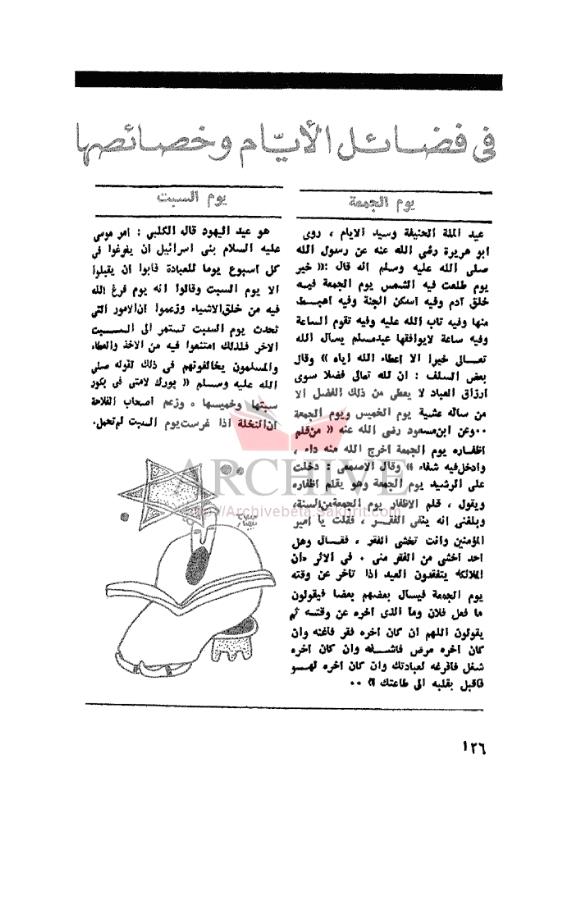 فى فضائل الأيّام وخصائصها
يوم الجمعة
عيد الملة الحنيفة وسيد الايام ، روى
ابو هريرة رضى الله عنه عن رسول الله
صلى الله عليه وسلم انه قال :« خير
يوم طلعت فيه الشمس يوم الجمعة فيه
خلق آدم وفيه اسكن الجنة وفيه اهبط
منها وفيه تاب الله عليه وفيه تقوم الساعة
وفيه ساعة لايوافقها عبدمسلم يسأل الله
تعالى خيرا الا اعطاه الله اياه » وقال
بعض السلف : ان لله تعالى فضلا سوى
ارزاق العباد لا يعطى من ذلك الفضل الا
من سأله عشية يوم الخميس ويوم الجمعة
٠٠وعن ابن مسعود رضى الله عنه « من قلم
اظفاره يوم الجمعة اخرج الله منه داء ،
وادخل فيه شفاء » وقال الاصمعى : دخلت
على الرشيد يوم الجمعة وهو يقلم اظفاره
ويقول ، قلم الاظفار يوم الجمعة من السنة،
وبلغنى انه ينفى الفقر ، فقلت يا امير
المؤمنين وانت تخشى الفقر ، فقال وهل
احد اخشى من الفقر منى ٠ فى الاثر «ان
الملائكة يتفقدون العبد اذا تاخر عن وقته
يوم الجمعة فيسأل بعضهم بعضا فيقولون
ما فعل فلان وما الذى اخره عن وقته ثم
يقولون اللهم ان كان اخره فقر فاغنه وان
كان اخره مرض فاشفه وان كان اخره
شغل فافرغه لعبادتك وان كان اخره لهو
فاقبل بقلبه الى طاعتك » ٠٠
يوم السبت
هو عيد اليهود قال الكلبي : امر موسى
عليه السلام بنى اسرائيل ان يفرغوا فى
كل اسبوع يوما للعبادة فابوا ان يقبلوا
الا يوم السبت وقالوا انه يوم فرغ الله
فيه من خلق الاشياء وزعموا ان الامور التى
تحدث يوم السبت تستمر الى السبت
الاخر فلذلك امتنعوا فيه من الاخذ والعطاء
والمسلمون يخالفونهم فى ذلك لقوله صلى
الله عليه وسلم « بورك لامتى فى بكور
سبتها وخميسها » وزعم اصحاب الفلاحة
ان النخلة اذا غرست يوم السبت لم تحمل.
ARCHIVE
http://Archivebeta.Sakhrit.com
١٢٦